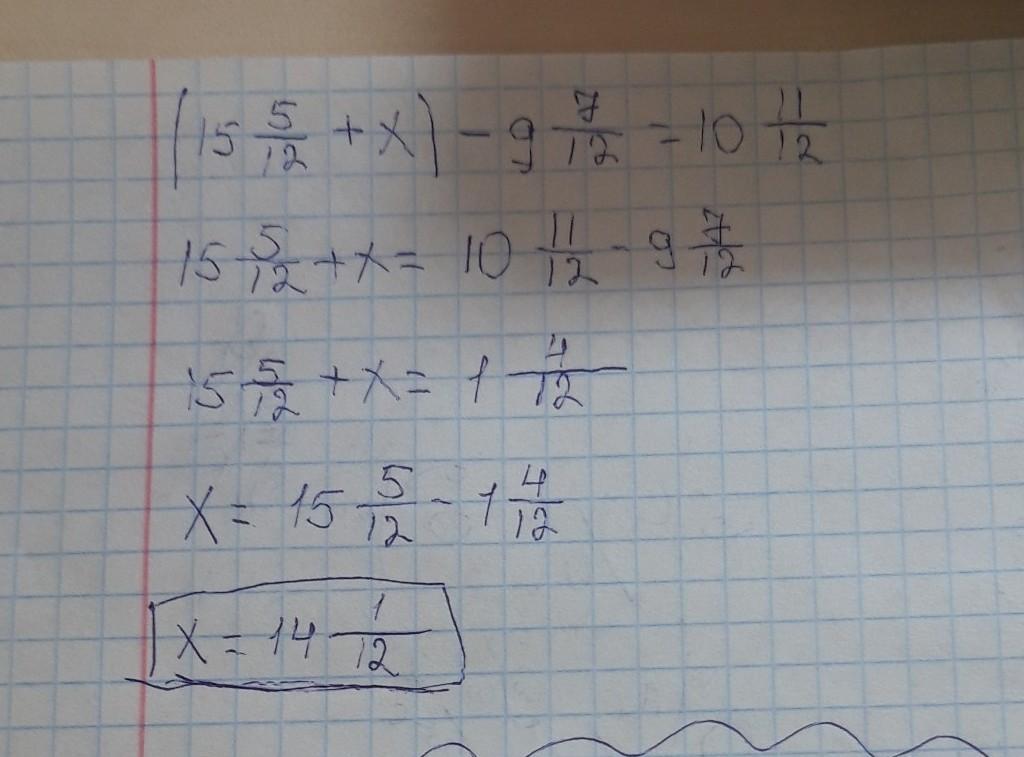 (15 5/12 + x) - 9 7/12 = 10 11/12
15 5/12 + x = 10 11/12 - 9 7/12
15 5/12 + x = 1 4/12
x = 15 5/12 - 1 4/12
x = 14 1/12